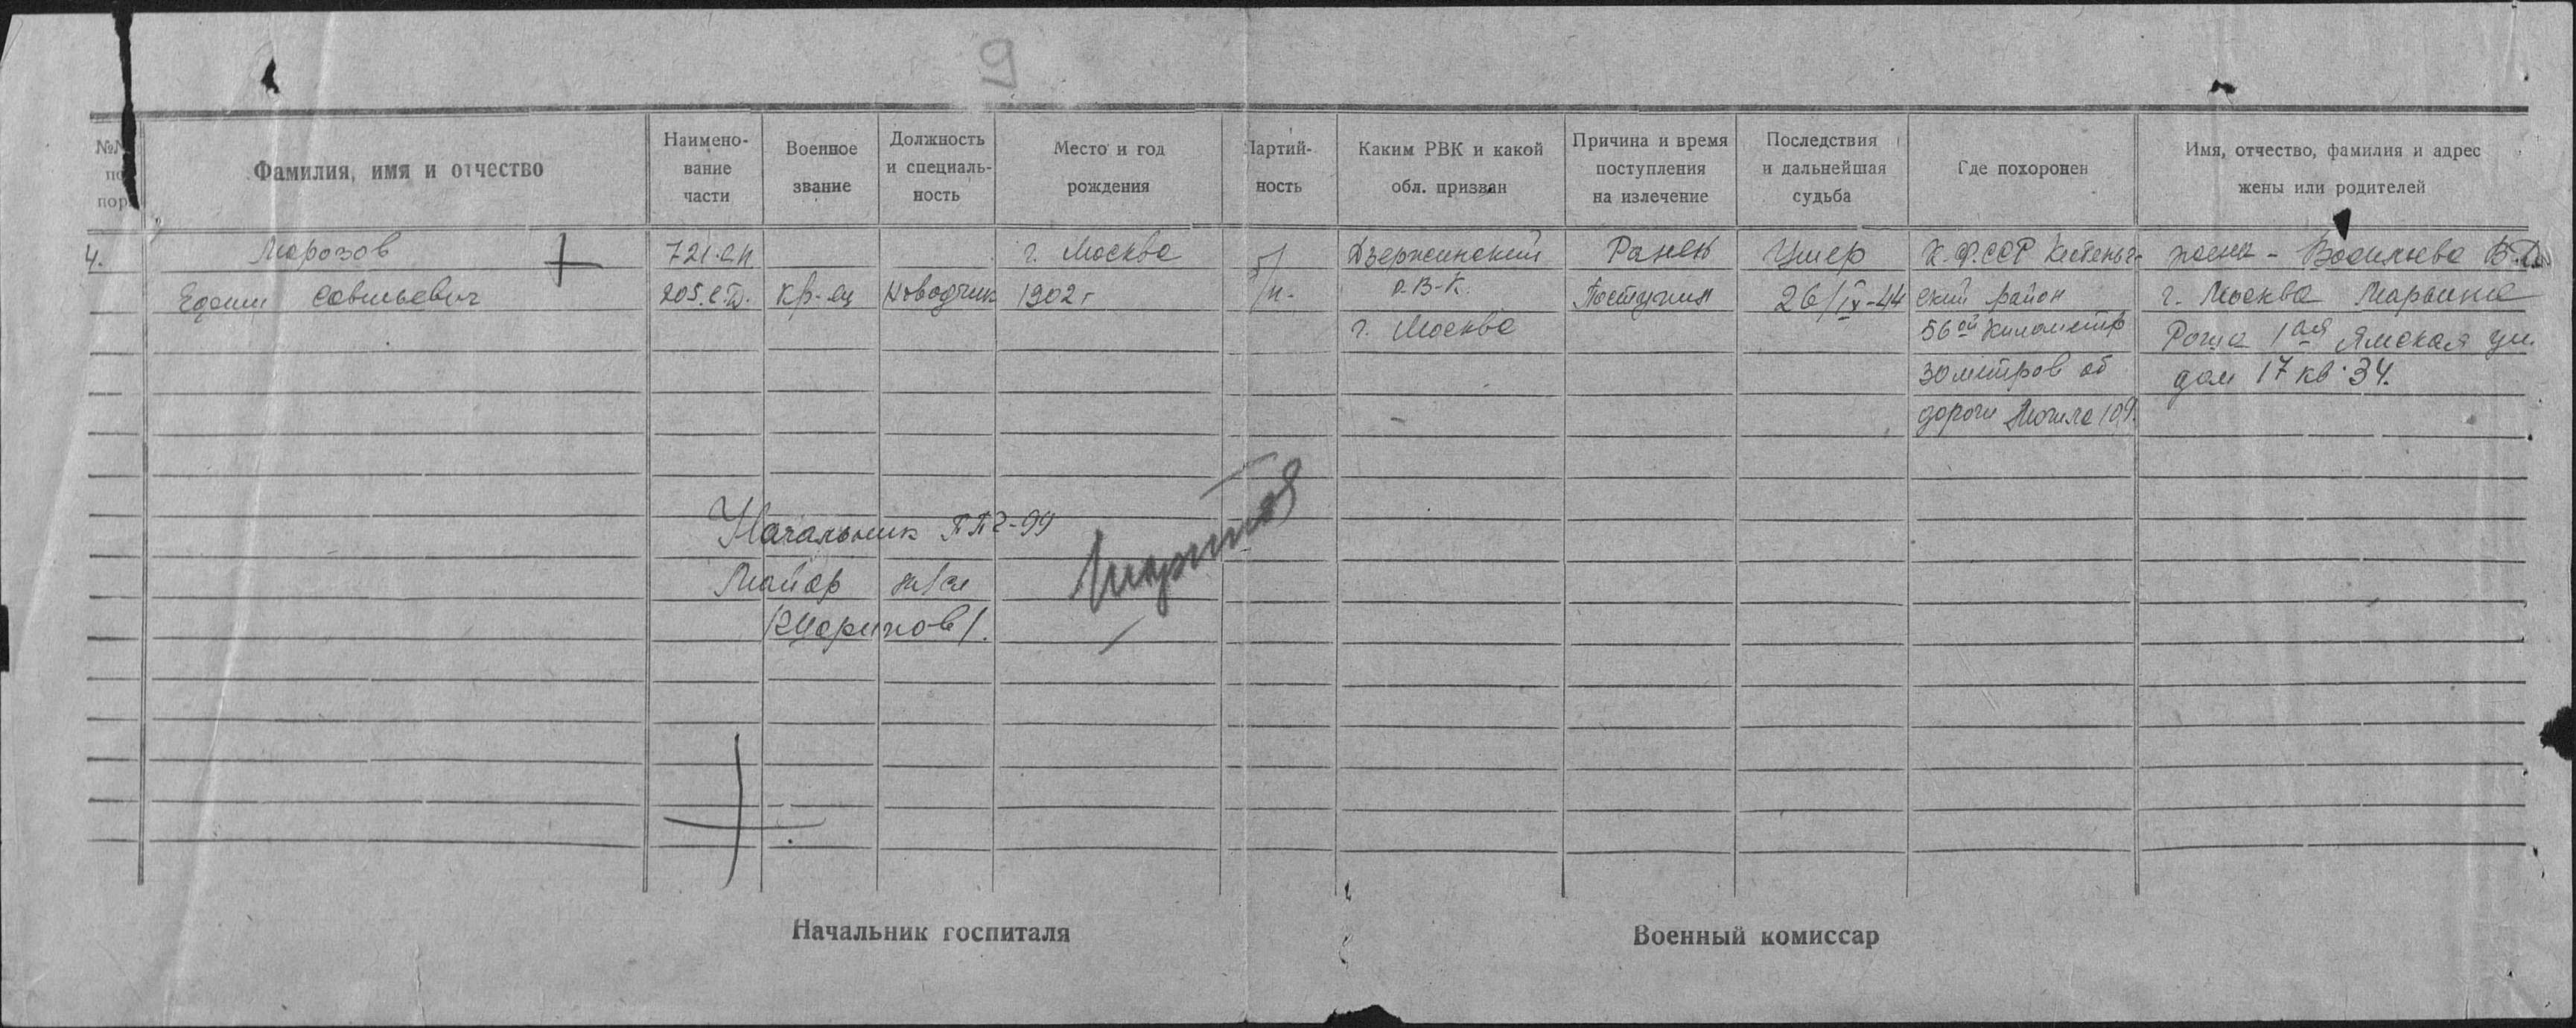 9
№№ по пор.
Фамилия, имя и отчество
Наимено-
вание
части
Военное
звание
Должность
и специаль-
ность
Место и год
рождения
Партий-
ность
Каким РВК и какой
обл. призван
Причина и время
поступления
на излечение
Последствия
и дальнейшая
судьба
Где похоронен
Имя, отчество, фамилия и адрес
жены или родителей
4.
Морозов
Савельевич
721.сп
205.с.д.
кр-ец
1902 г
г. Москва
б/
п.
Дзержинский
Р-В-К.
г. Москва
Ранен
Поступил
Умер
26/IX-44
К.Ф.ССР Кестеньг-
ский район
56ой километр
30 метров от
дороги Могила 109.
жена - Васильева В.
г. Москва Марьина
Роща 1ая Ямская ул.
дом 17 кв. 34.
Начальник ППГ-99
Майор м/сл
Начальник госпиталя
Военный комиссар